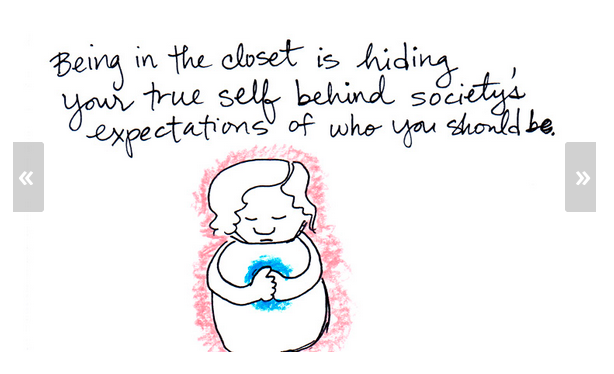 Being in the closet is hiding
your true self behind society's
expectations of who you should be.